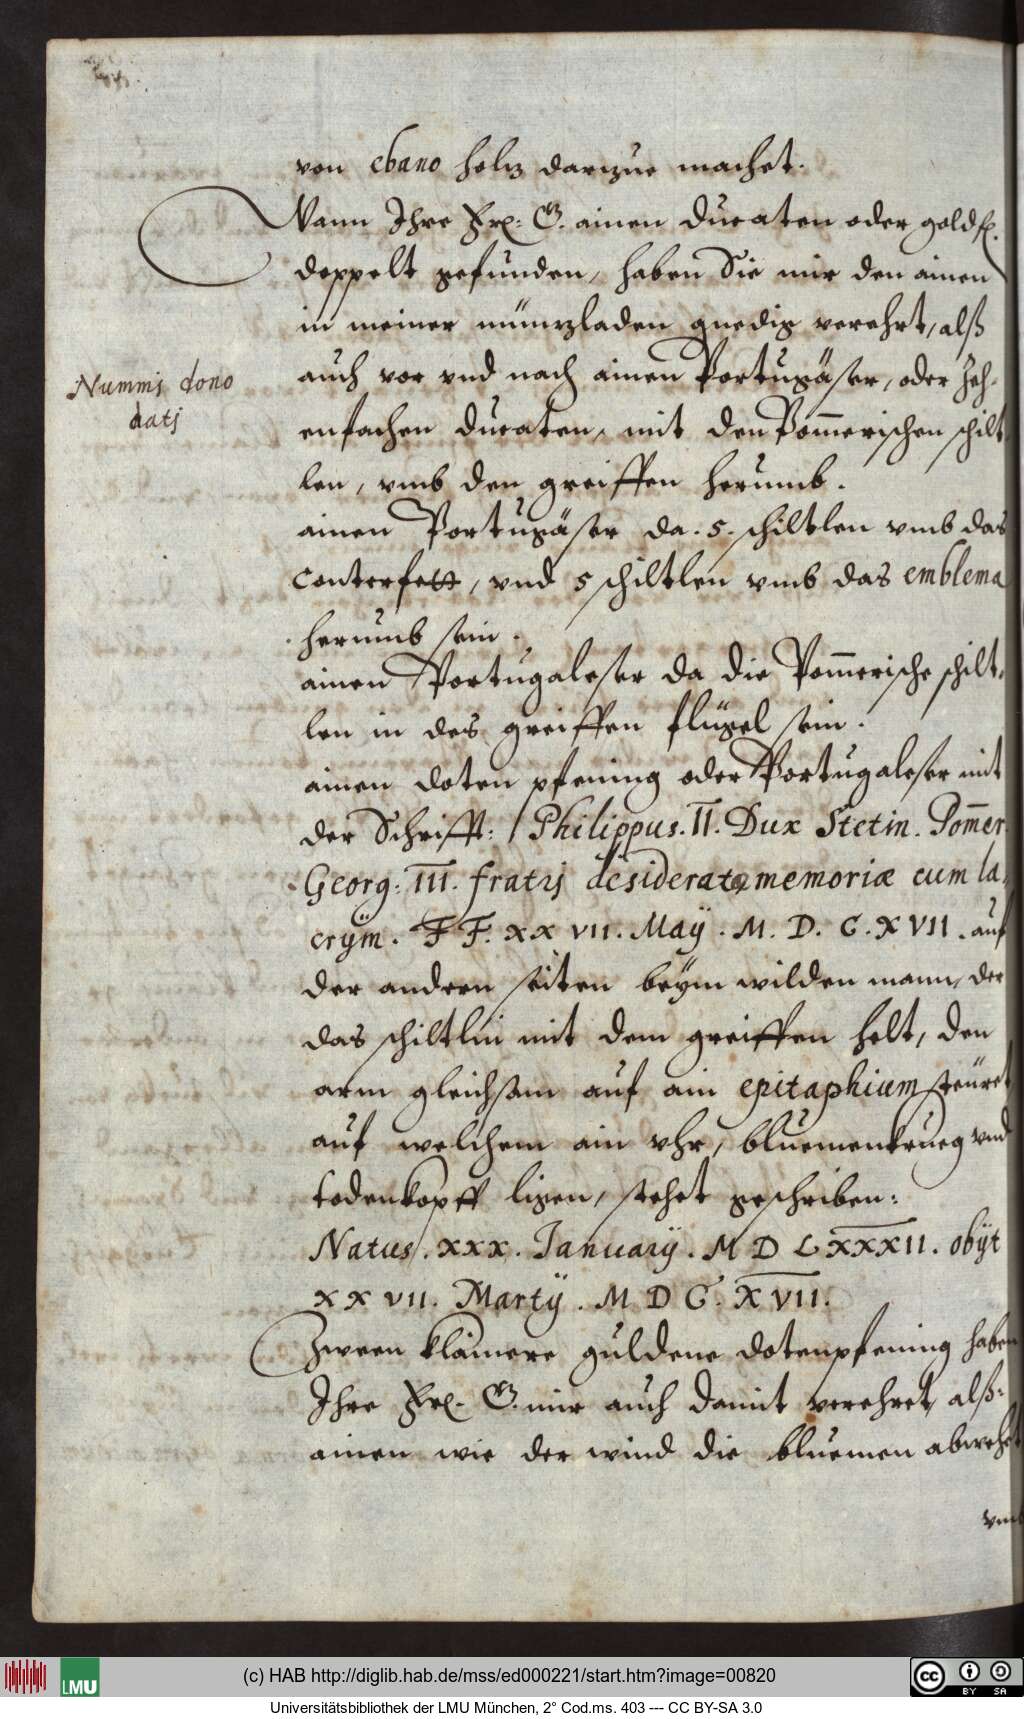 von ebano holtz darzue machet.
Wann Ihre Frl: G. ainen Ducaten oder goldfl.
doppelt gefunden, haben Sie mir den ainen
in meiner müntzladen gnedig verehrt, alß
Nummj dono
datj
auch vor vnd nach ainen Portugäser, oder Zeh-
enfachen Ducaten, mit den Pom̄erischen schilt
len, vmb den greiffen herumb.
ainen Portugäser da. 5. schiltlen vmb das
Conterfett, vnd 5 schiltlen vmb das emblema
herumb sein.
ainen Portugaleser da die Pom̄erische schilt-
len in des greiffen flügel sein.
ainen doten pfening oder Portugaleser mit
der Schrifft: Philippus. II. Dux Stetin. Pom̄er.
Georg: III. fratrj desideratæ memoriæ cum la,
crÿm. F F. XXVII. Maÿ. M. D. C. XVII. auf
der andern seiten beÿm wilden mann, der
das schiltlin mit dem greiffen helt, den
arm gleichsam auf ain epitaphium steüret
auf welchem ain vhr, bluemenkrueg vnd
todenkopff ligen, stehet geschriben:
Natus. XXX. Januarÿ. M D LXXXII. obÿt
XXVII. Martÿ. M D C. XVII.
Zween klainere guldene dotenpfening haben
Ihre Frl. G. mir auch damit verehret, alß-
ainen wie der wind die bluemen abwehet
vmb
LMU
(c) HAB http://diglib.hab.de/mss/ed000221/start.htm?image=00820
CC BY SA
Universitätsbibliothek der LMU München, 2° Cod.ms. 403 --- CC BY-SA 3.0